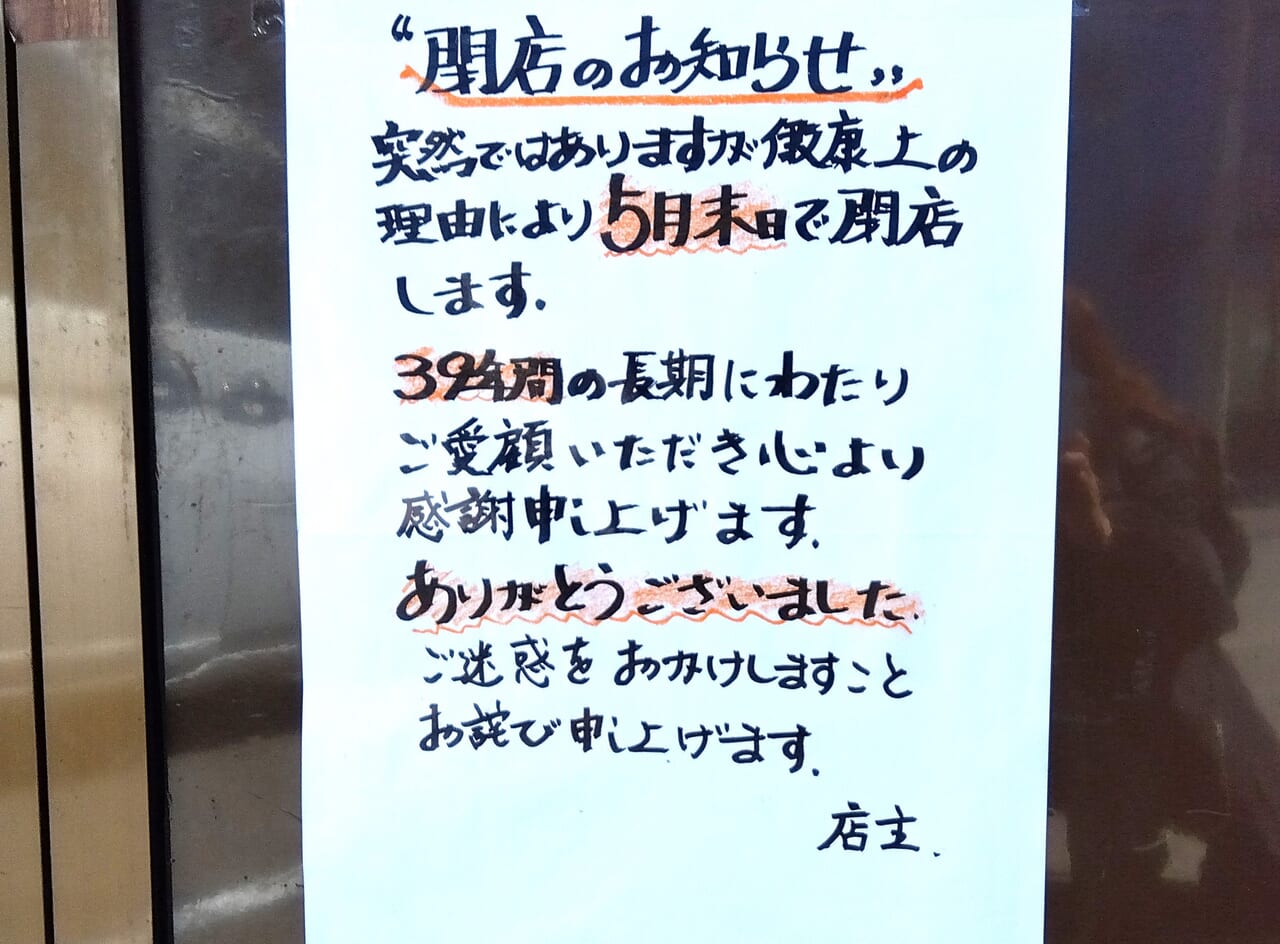 “閉店のお知らせ„
突然ではありますが健康上の
理由により5月末日で閉店
します.
39年間の長期にわたり
ご愛顧いただき心より
感謝申し上げます.
ありがとうございました.
ご迷惑をおかけしますこと
お詫び申し上げます.
店主.